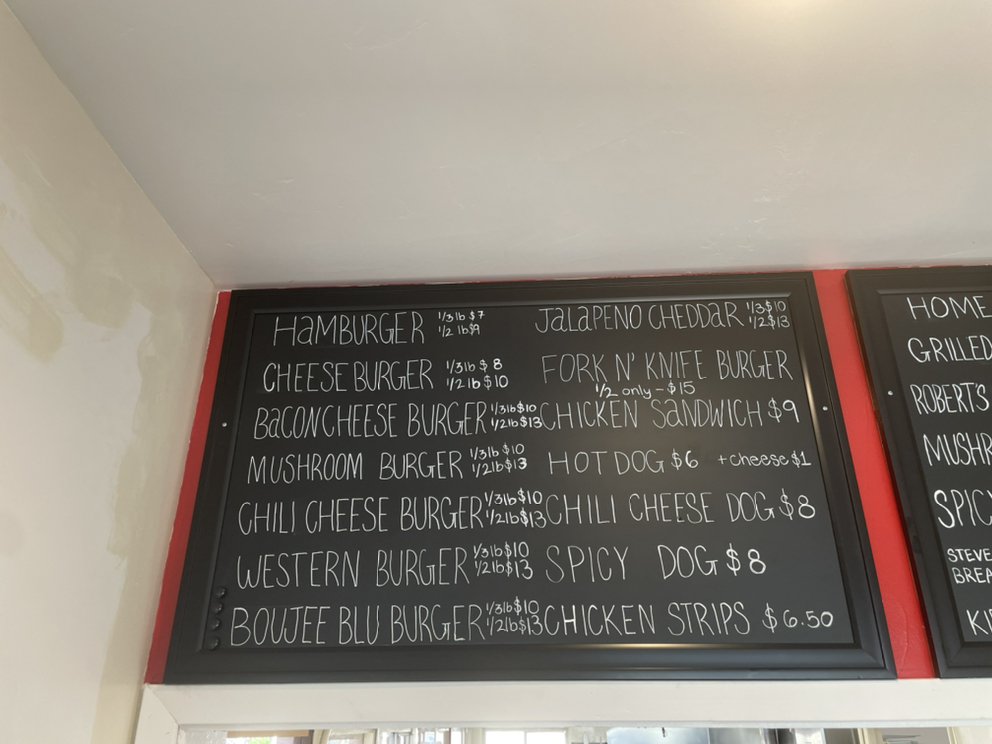 HAMBURGER 1/3 lb $7
1/2 lb $9
CHEESE BURGER 1/3 lb $8
1/2 lb $10
BACON CHEESE BURGER 1/3 lb $10
1/2 lb $13
MUSHROOM BURGER 1/3 lb $10
1/2 lb $13
CHILI CHEESE BURGER 1/3 lb $10
1/2 lb $13
WESTERN BURGER 1/3 lb $10
1/2 lb $13
BOUJEE BLU BURGER 1/3 lb $10
1/2 lb $13
JALAPENO CHEDDAR 1/3 $10
1/2 $13
FORK N' KNIFE BURGER
1/2 only - $15
CHICKEN SANDWICH $9
HOT DOG $6 +cheese $1
CHILI CHEESE DOG $8
SPICY DOG $8
CHICKEN STRIPS $6.50
HOME
GRILLED
ROBERT'S
MUSHR
SPIC
STEVE
BREA
KI